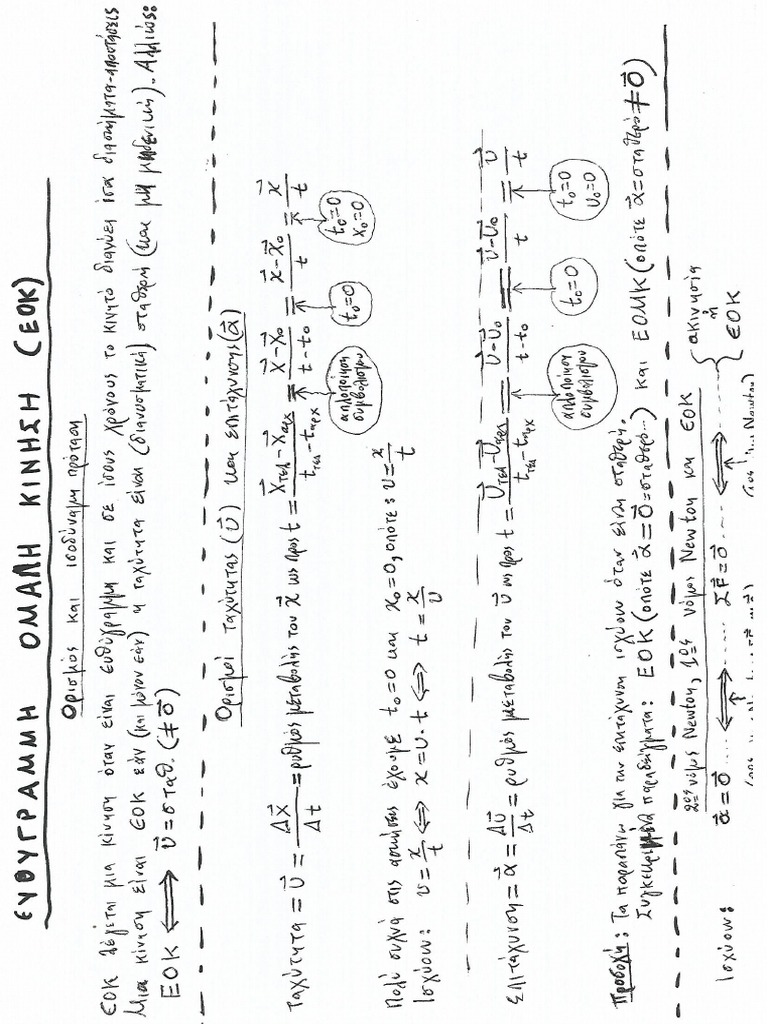 ΕΥΘΥΓΡΑΜΜΗ ΟΜΑΛΗ ΚΙΝΗΣΗ (ΕΟΚ)
Ορισμός και ισοδύναμη πρόταση
ΕΟΚ λέγεται μια κίνηση όταν είναι ευθύγραμμη και σε ίσους χρόνους το κινητό διανύει ίσα διαστήματα-αποστάσεις
Μια κίνηση είναι ΕΟΚ εάν (και μόνον εάν) η ταχύτητα είναι (διανυσματικά) σταθερή (και μη μηδενική). Αλλιώς:
ΕΟΚ ⟺ υ⃗ = σταθ. (≠ 0⃗)
Ορισμοί ταχύτητας (υ⃗) και επιτάχυνσης (α⃗)
Ταχύτητα = υ⃗ = Δx⃗/Δt = ρυθμός μεταβολής του x⃗ ως προς t = (x⃗τελ - x⃗αρχ)/(tτελ - tαρχ) = (x⃗ - x⃗₀)/(t - t₀) = (x⃗ - x⃗₀)/t = x⃗/t
απλοποίηση συμβολισμού   t₀=0   t₀=0 x₀=0
Πολύ συχνά στις ασκήσεις έχουμε t₀=0 και x₀=0, οπότε υ = x/t
Ισχύουν: υ = x/t ⟺ x = υ·t ⟺ t = x/υ
Επιτάχυνση = α⃗ = Δυ⃗/Δt = ρυθμός μεταβολής του υ⃗ ως προς t = (υ⃗τελ - υ⃗αρχ)/(tτελ - tαρχ) = (υ⃗ - υ⃗₀)/(t - t₀) = (υ⃗ - υ⃗₀)/t = υ⃗/t
απλοποίηση συμβολισμού   t₀=0   t₀=0 υ₀=0
Προσοχή: Τα παραπάνω για την επιτάχυνση ισχύουν όταν είναι σταθερή.
Συγκεκριμένα παραδείγματα: ΕΟΚ (οπότε α⃗ = 0⃗ = σταθερό...) και ΕΟΜΚ (οπότε α⃗ = σταθερό ≠ 0⃗)
2ος νόμος Newton, 1ος νόμος Newton και ΕΟΚ
Ισχύουν: α⃗ = 0⃗ ⟺ ΣF⃗ = 0⃗ ⟺ { ακινησία ή ΕΟΚ